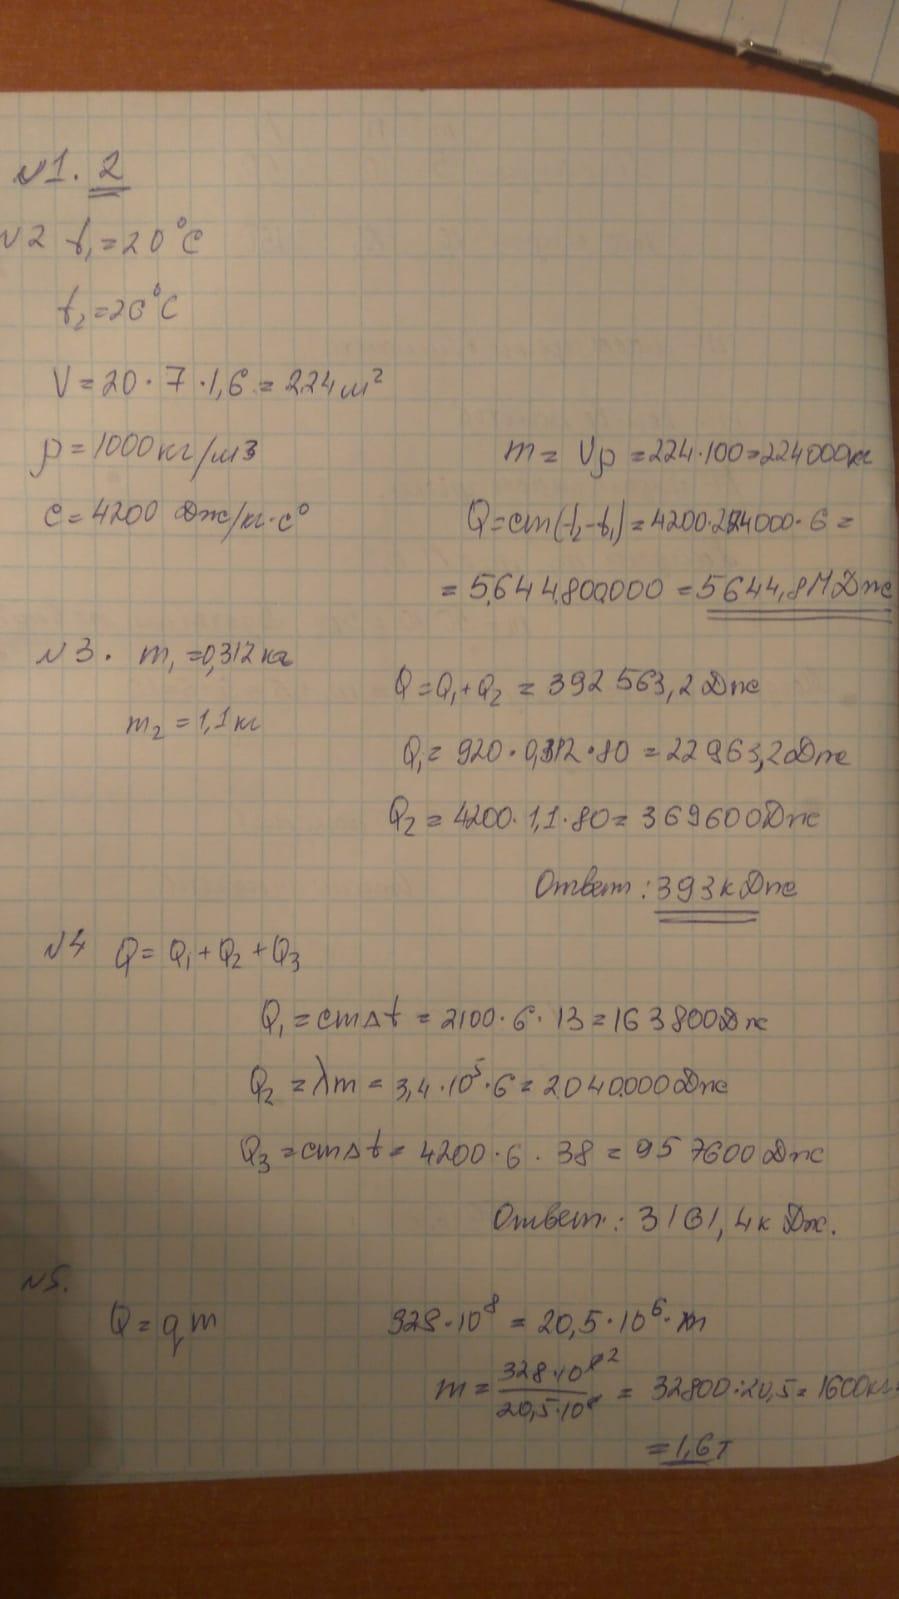 №1. 2
№2 t₁=20°C
t₂=26°C
V=20·7·1,6=224м²
ρ=1000кг/м3
m= Vρ=224·100=224000кг
c=4200 Дж/кг·c°
Q=cm(t₂-t₁)=4200·224000·6=
=5.644.800.000=5644,8МДж
№3. m₁=0,312кг
Q=Q₁+Q₂ = 392 563,2 Дж
m₂=1,1кг
Q₁= 920·0,312·80 = 22963,2Дж
Q₂=4200·1,1·80=369600Дж
Ответ: 393кДж
№4 Q= Q₁+Q₂+Q₃
Q₁=cmΔt = 2100·6·13=163800Дж
Q₂=λm = 3,4·10⁵·6=2040000Дж
Q₃=cmΔt= 4200·6·38=957600Дж
Ответ: 3161,4кДж.
№5.
Q=qm
328·10⁸ = 20,5·10⁶·m
m= 328·10⁸ ² / 20,5·10⁶ = 32800:20,5=1600кг=
=1,6т